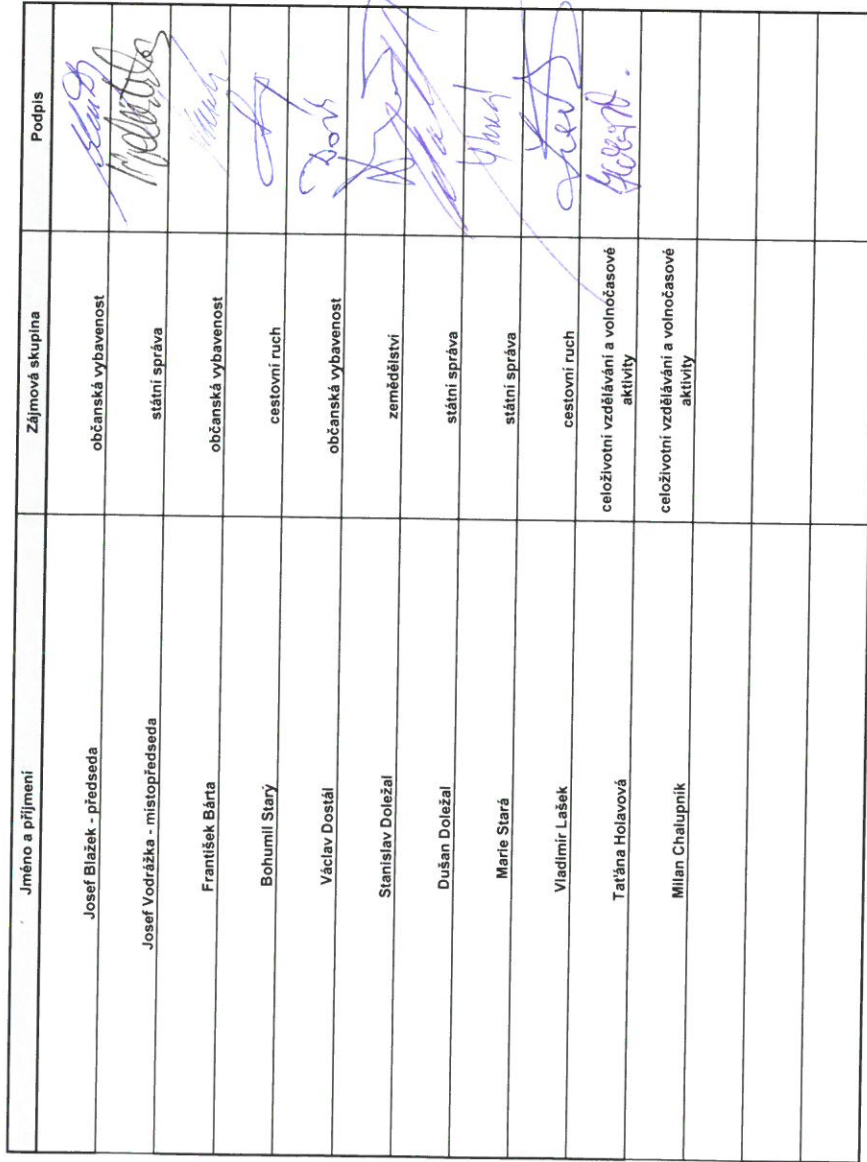 Jméno a příjmení Zájmová skupina Podpis
Josef Blažek - předseda občanská vybavenost
Josef Vodrážka - místopředseda státní správa
František Bárta občanská vybavenost
Bohumil Starý cestovní ruch
Václav Dostál občanská vybavenost
Stanislav Doležal zemědělství
Dušan Doležal státní správa
Marie Stará státní správa
Vladimír Lašek cestovní ruch
Taťána Holavová celoživotní vzdělávání a volnočasové
aktivity
Milan Chalupník celoživotní vzdělávání a volnočasové
aktivity